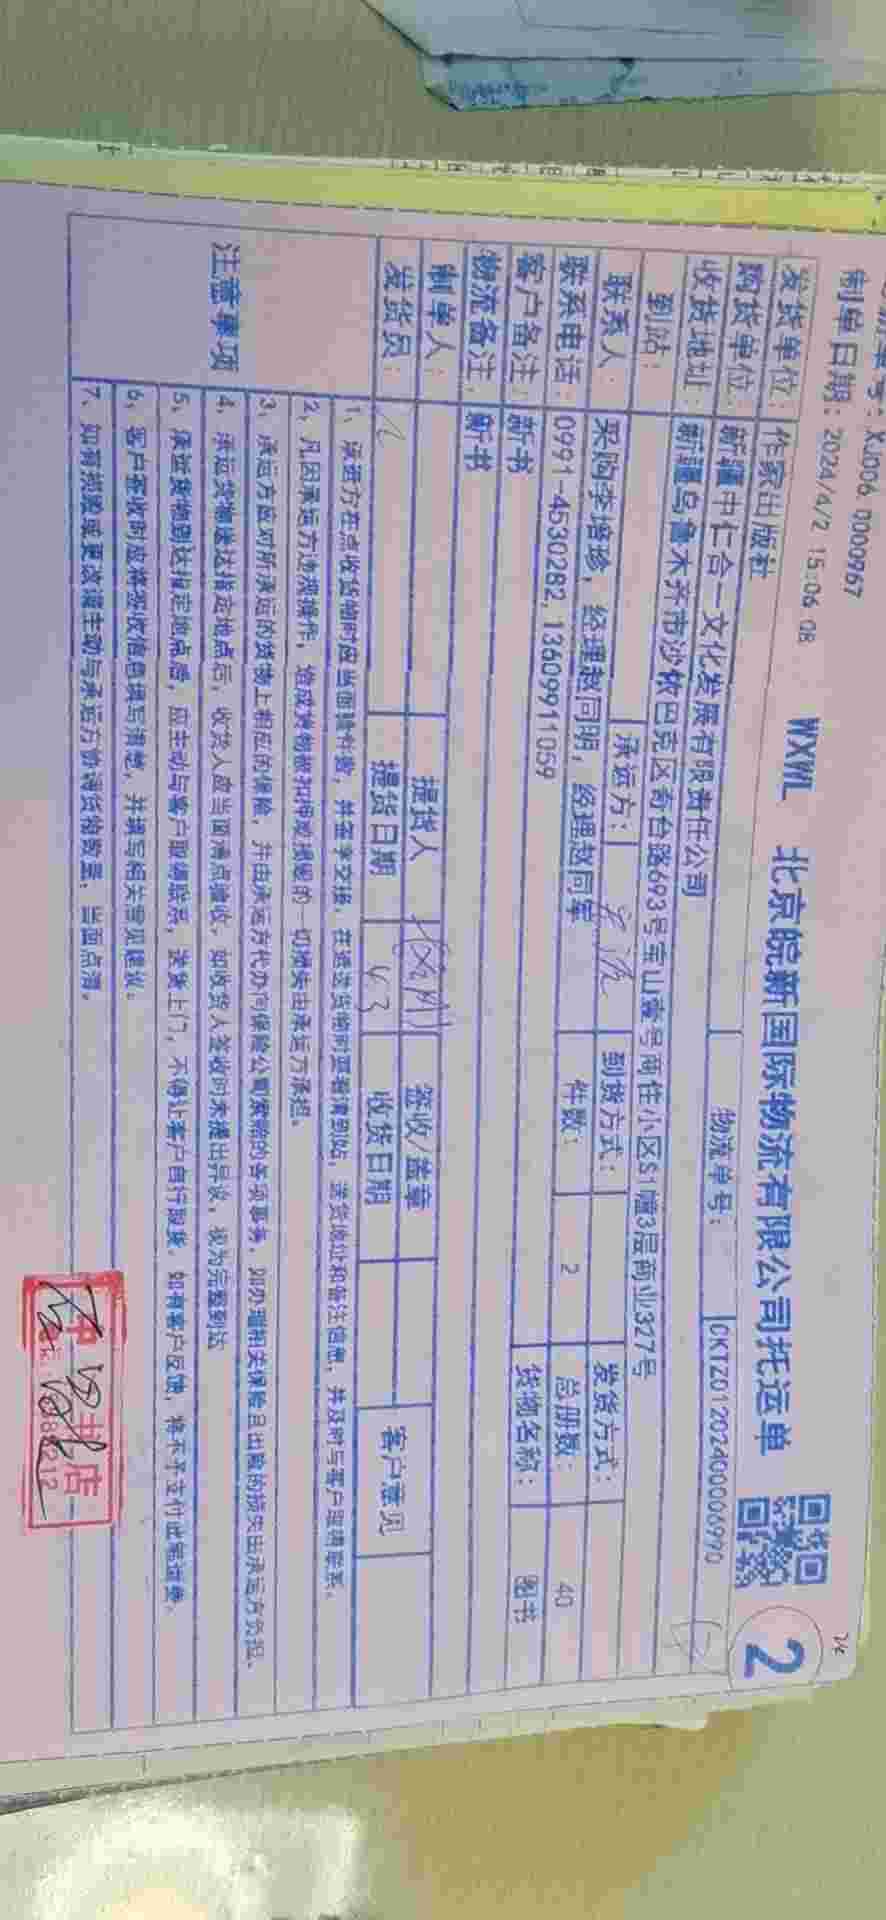 单号：XJ006 0000967
制单日期：2024/4/2 15:06 08
WXWL 北京皖新国际物流有限公司托运单
2
发货单位：作家出版社
物流单号：CKTZ0120240006990
购货单位：新疆中仁合一文化发展有限责任公司
收货地址：新疆乌鲁木齐市沙依巴克区奇台路693号宝山壹号商住小区S1幢3层商业327号
到站：
承运方：
到货方式：
发货方式：
联系人：采购李培珍，经理赵同明，经理赵同军
件数：2
总册数：40
联系电话：0991-4530282,13609911059
货物名称：图书
客户备注：新书
物流备注：新书
制单人：
提货人
签收/盖章
客户意见
发货员：
提货日期 4 3
收货日期
注意事项
1、承运方在点收货物时应当面清件数，并签字交接，在送货物时要看清到站、送货地址和备注信息，并及时与客户取得联系。
2、凡因承运方违规操作，造成货物被扣押或损毁的一切损失由承运方承担。
3、承运方应对所承运的货物上相应的保险，并由承运方代办向保险公司索赔的各项事务，如办理相关保险且出险的损失由承运方负担。
4、承运货物送达指定地点后，收货人应当面清点验收，如收货人签收时未提出异议，视为完整到达
5、承运货物到达指定地点后，应主动与客户取得联系，送货上门，不得让客户自行取货。如有客户反馈，将不予支付此笔运费。
6、客户签收时应将签收信息填写清楚，并填写相关意见建议。
7、如有破损或更改请主动与承运方协调货物数量，当面点清。